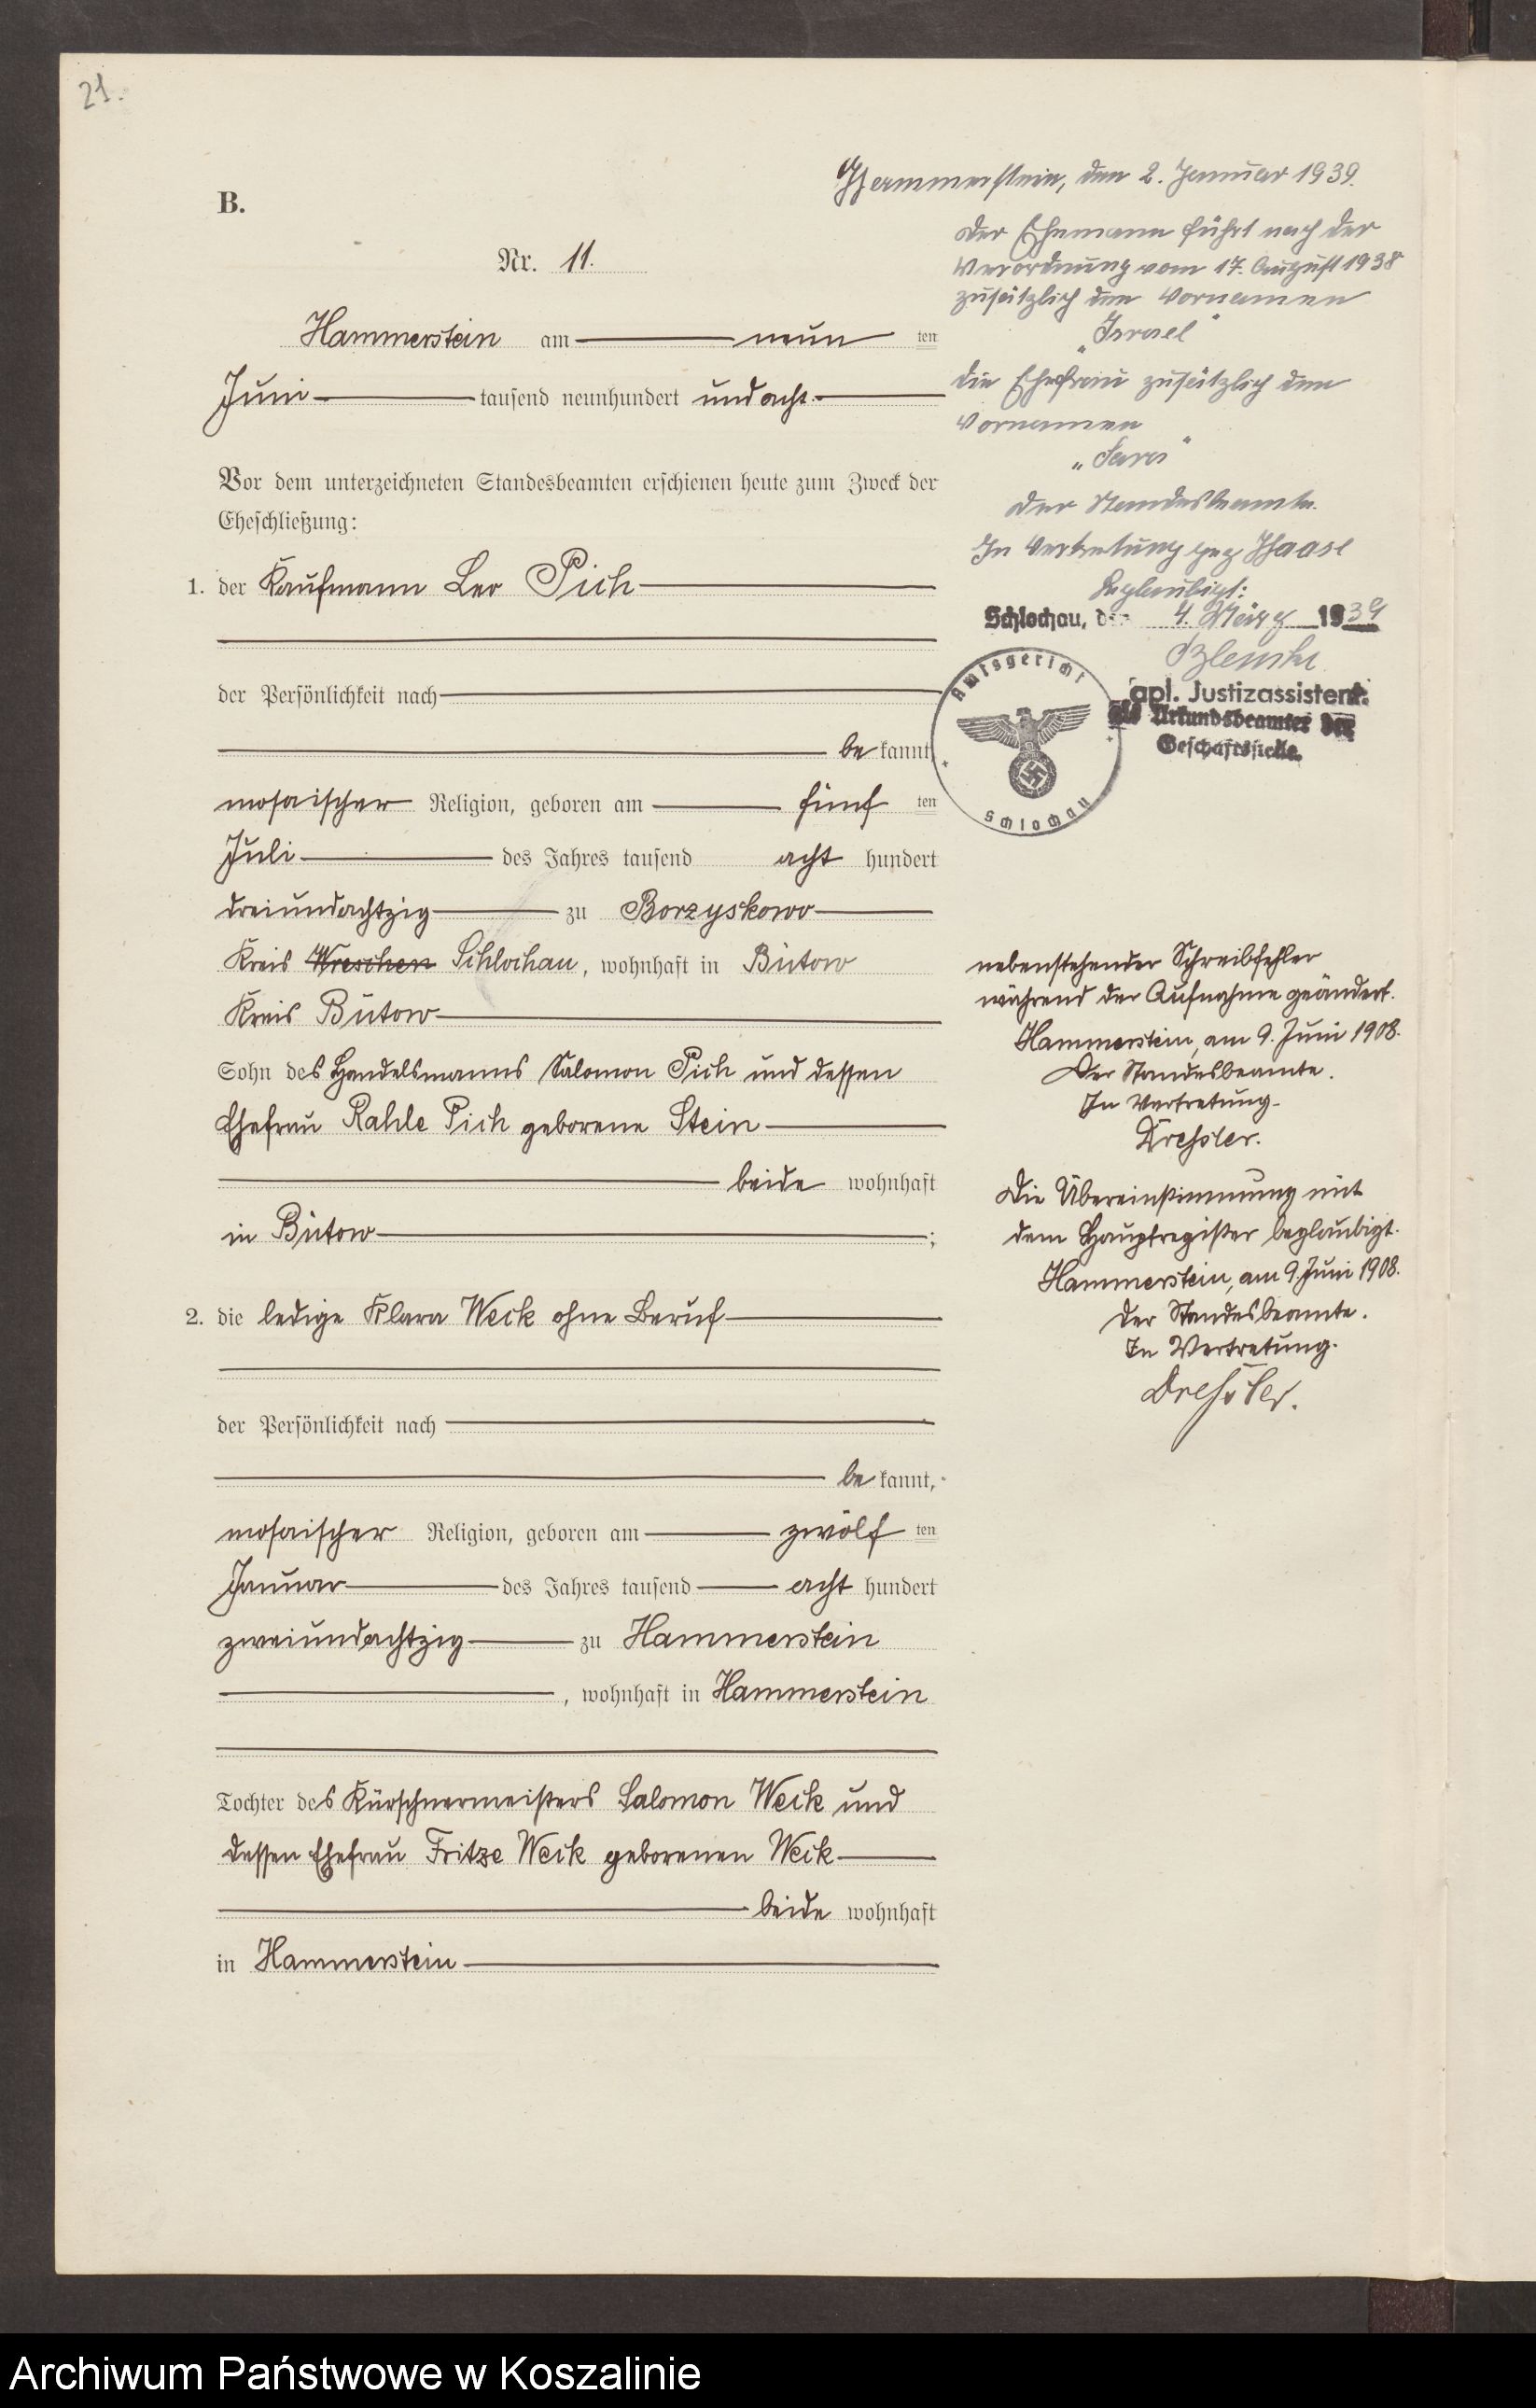 21.
B.
Nr. 11.
Hammerstein am neun ten
Juni tausend neunhundert und acht.
Vor dem unterzeichneten Standesbeamten erschienen heute zum Zweck der
Eheschließung:
1. der Kaufmann Leo Pich
der Persönlichkeit nach
be kannt,
mosaischer Religion, geboren am fünf ten
Juli des Jahres tausend acht hundert
dreiundachtzig zu Borzyskowo
Kreis Wreschen Schlochau, wohnhaft in Bütow
Kreis Bütow
Sohn des Handelsmanns Salomon Pich und dessen
Ehefrau Rahle Pich geborene Stein
beide wohnhaft
in Bütow ;
2. die ledige Klara Weck ohne Beruf
der Persönlichkeit nach
be kannt,
mosaischer Religion, geboren am zwölf ten
Januar des Jahres tausend acht hundert
zweiundachtzig zu Hammerstein
, wohnhaft in Hammerstein
Tochter des Kürschnermeisters Salomon Weck und
dessen Ehefrau Fritze Weck geborenen Weck
beide wohnhaft
in Hammerstein
Hammerstein, den 2. Januar 1939.
Der Ehemann führt nach der
Verordnung vom 17. August 1938
zusätzlich den Vornamen
„Israel"
die Ehefrau zusätzlich den
Vornamen
„Sara"
Der Standesbeamte.
In Vertretung gez Haase
Beglaubigt:
Schlochau, den 4. März 1939
apl. Justizassistent.
als Urkundsbeamter der
Geschäftsstelle.
Amtsgericht
Schlochau
nebenstehender Schreibfehler
während der Aufnahme geändert.
Hammerstein, am 9. Juni 1908.
Der Standesbeamte.
In Vertretung.
Dressler.
Die Übereinstimmung mit
dem Hauptregister beglaubigt.
Hammerstein, am 9. Juni 1908.
Der Standesbeamte.
In Vertretung.
Dressler.
Archiwum Państwowe w Koszalinie